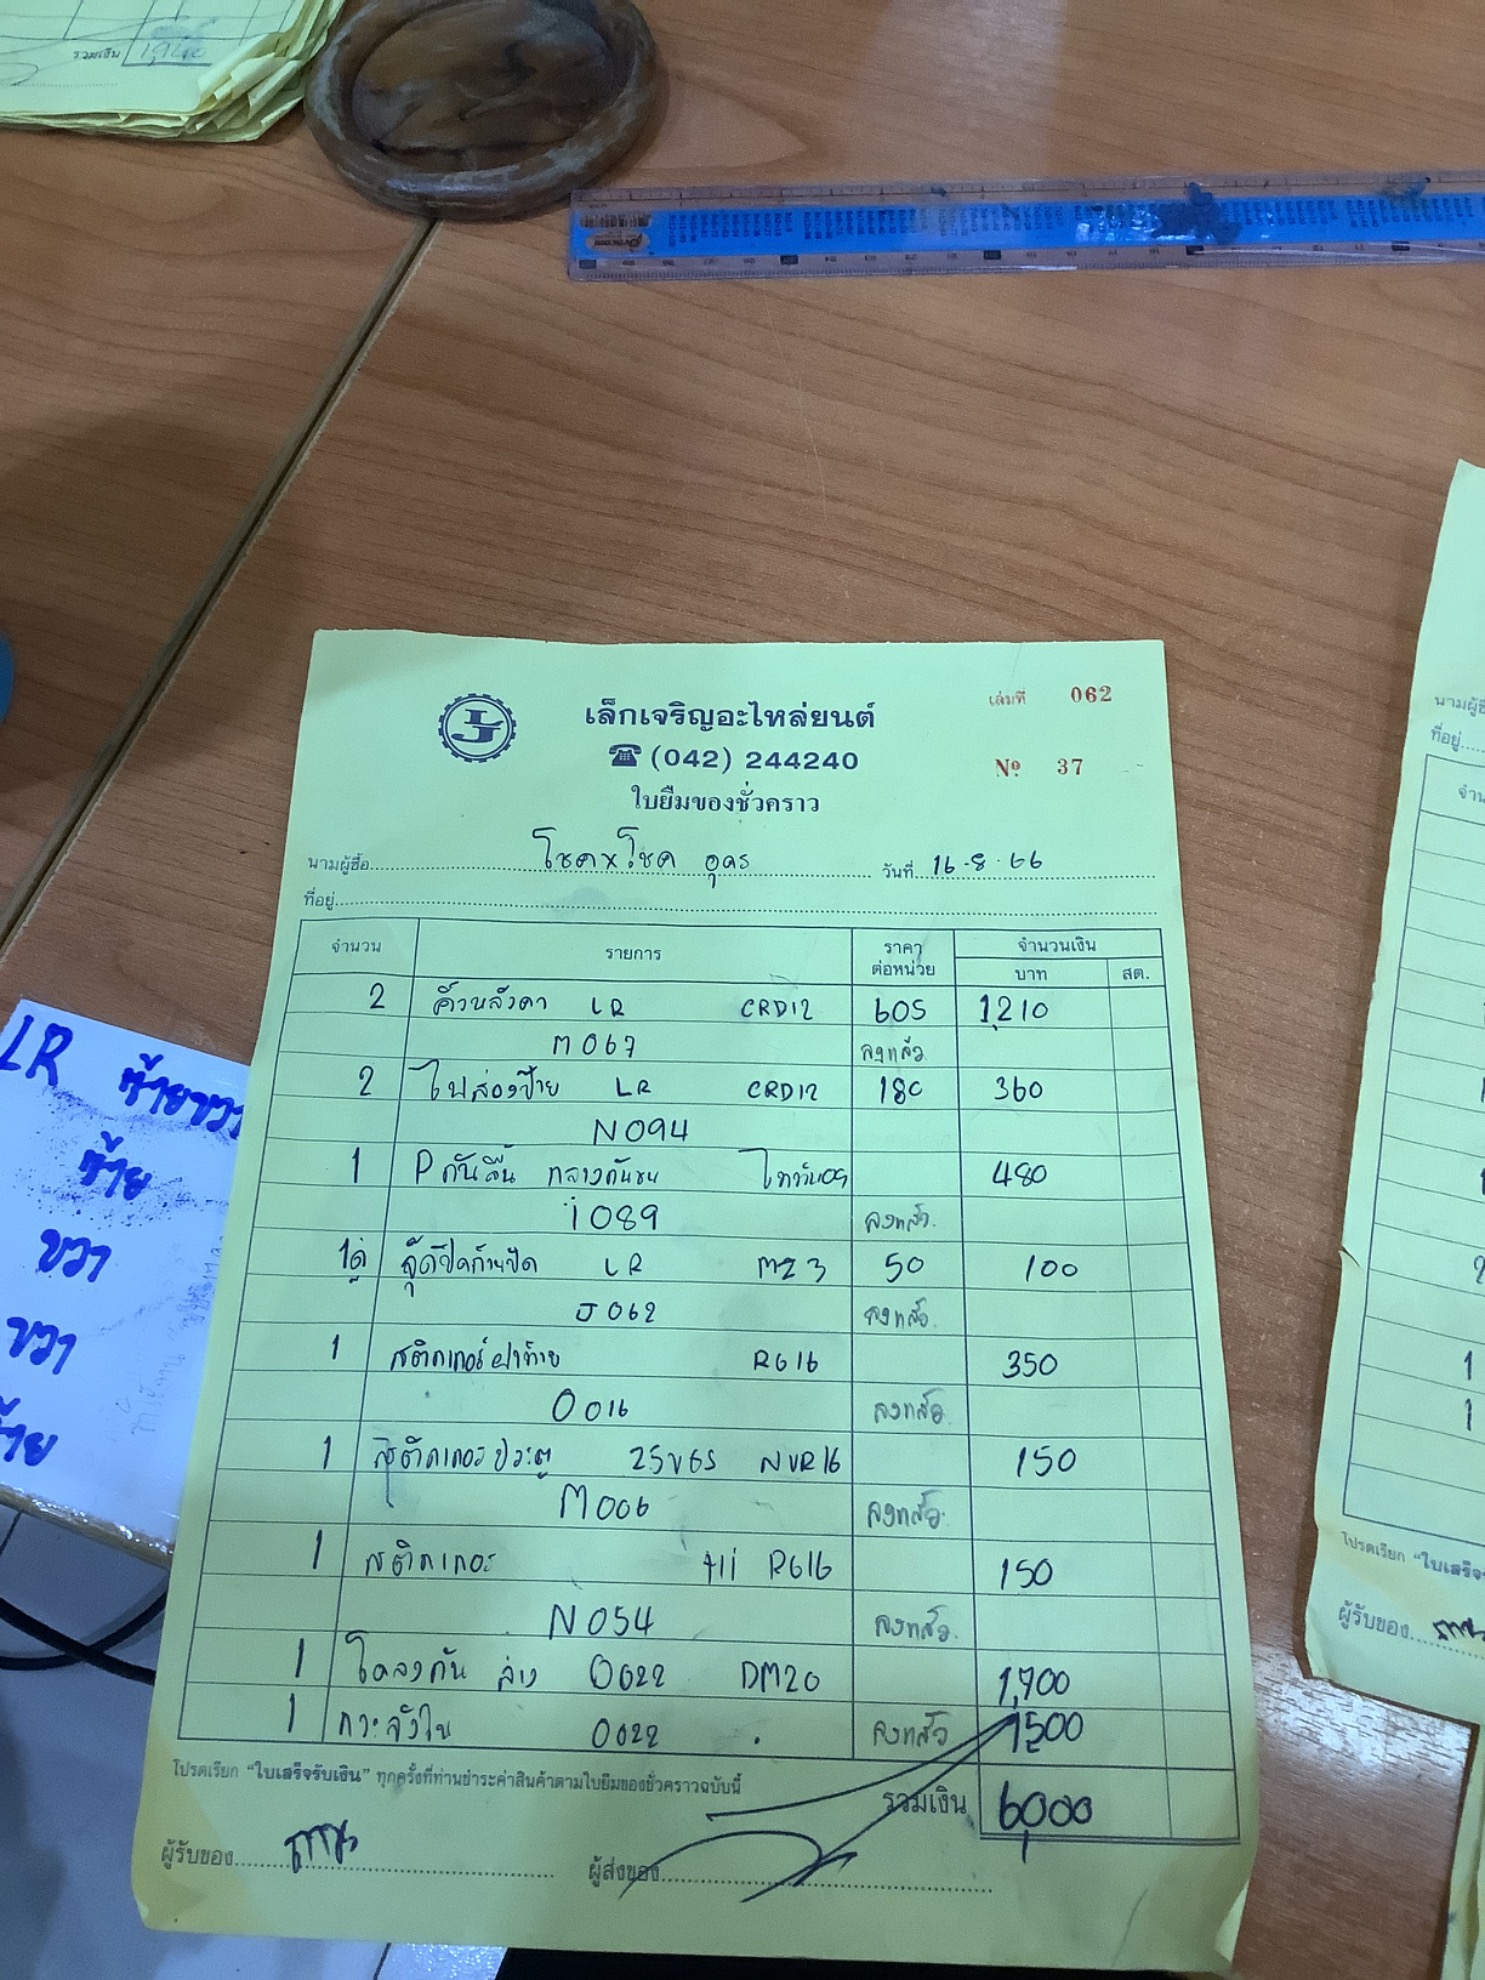 รวมเงิน 1,940
LJ
เล็กเจริญอะไหล่ยนต์
เล่มที่ 062
☎ (042) 244240
Nº 37
ใบยืมของชั่วคราว
นามผู้ซื้อ โชคxโชค อุดร วันที่ 16-8-66
ที่อยู่
จำนวน รายการ ราคาต่อหน่วย จำนวนเงิน
บาท สต.
2 คิ้วหลังคา LR CRD12 605 1,210
M067 ลงแล้ว
2 ไฟส่องป้าย LR CRD12 180 360
N094
1 Pกันลื่น กลางกันชน ไททัน09 480
i089 ลงแล้ว
1คู่ LR MZ3 50 100
J062 ลงแล้ว
1 สติกเกอร์ฝาท้าย RG16 350
O016 ลงแล้ว
1 สติกเกอร์ประตู 25VGS NVR16 150
M006 ลงแล้ว
1 สติกเกอร์ Hi RG16 150
N054 ลงแล้ว
1 โครงกัน ล่าง O022 DM20 1,700
1 กระจังใน O022 ลงแล้ว 1,500
โปรดเรียก "ใบเสร็จรับเงิน" ทุกครั้งที่ท่านชำระค่าสินค้าตามใบยืมของชั่วคราวฉบับนี้
รวมเงิน 6,000
ผู้รับของ
ผู้ส่งของ
LR ซ้ายขวา
ซ้าย
ขวา
ขวา
ซ้าย
นามผู้ซื้อ
ที่อยู่
1
1
โปรดเรียก "ใบเสร็จ
ผู้รับของ